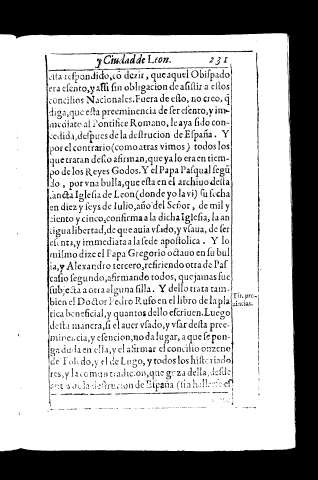 y Ciudad de Leon. 231
esta respondido, cõ dezir, que aquel Obispado
era esento, y assi sin obligacion de asistir a estos
concilios Nacionales. Fuera de esto, no creo, q̃
diga, que esta preeminencia de ser esento, y im
mediato al Pontifice Romano, le aya sido con-
cedida, despues de la destrucion de España. Y
por el contrario (como atras vimos) todos los
que tratan desto afirman, que ya lo era en tiem-
po de los Reyes Godos. Y el Papa Pasqual segũ
do, por vna bulla, que esta en el archiuo desta
sancta Iglesia de Leon (donde yo la vi) su fecha
en diez y seys de Iulio, año del Señor, de mil y
ziento y cinco, confirma a la dicha Iglesia, la an
tigua libertad, de que auia vsado, y vsaua, de ser
esenta, y immediata a la sede apostolica. Y lo
mismo dize el Papa Gregorio octauo en su bul
la, y Alexandro tercero, refiriendo otra de Pas
casio segundo, afirmando todos, que jamas fue
subjecta a otra alguna silla. Y dello trata tam-
bien el Doctor Pedro Ruso en el libro de la pla
tica beneficial, y quantos dello escriuen. Luego
desta manera, si el auer vsado, y vsar desta pree-
minencia, y esencion, no da lugar, a que se pon-
ga duda en ella, y el afirmar el concilio onzeno
de Toledo, y el de Lugo, y todos los historiado
res, y la comun tradicion, que goza della, desde
antes de la destrucion de España (sin hallarse es
Tit. pro-
uincias.